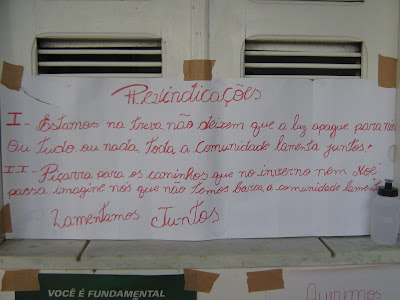 Reivindicações
I - Estamos na treva não deixem que a luz apague para nós
Ou tudo ou nada toda a Comunidade lamenta juntos!
II - Piçarra para os caminhos que no inverno nem Noé
passa imagine nós que não temos barca, a comunidade lamenta
Lamentamos Juntos
VOCÊ É FUNDAMENTAL
Queremos